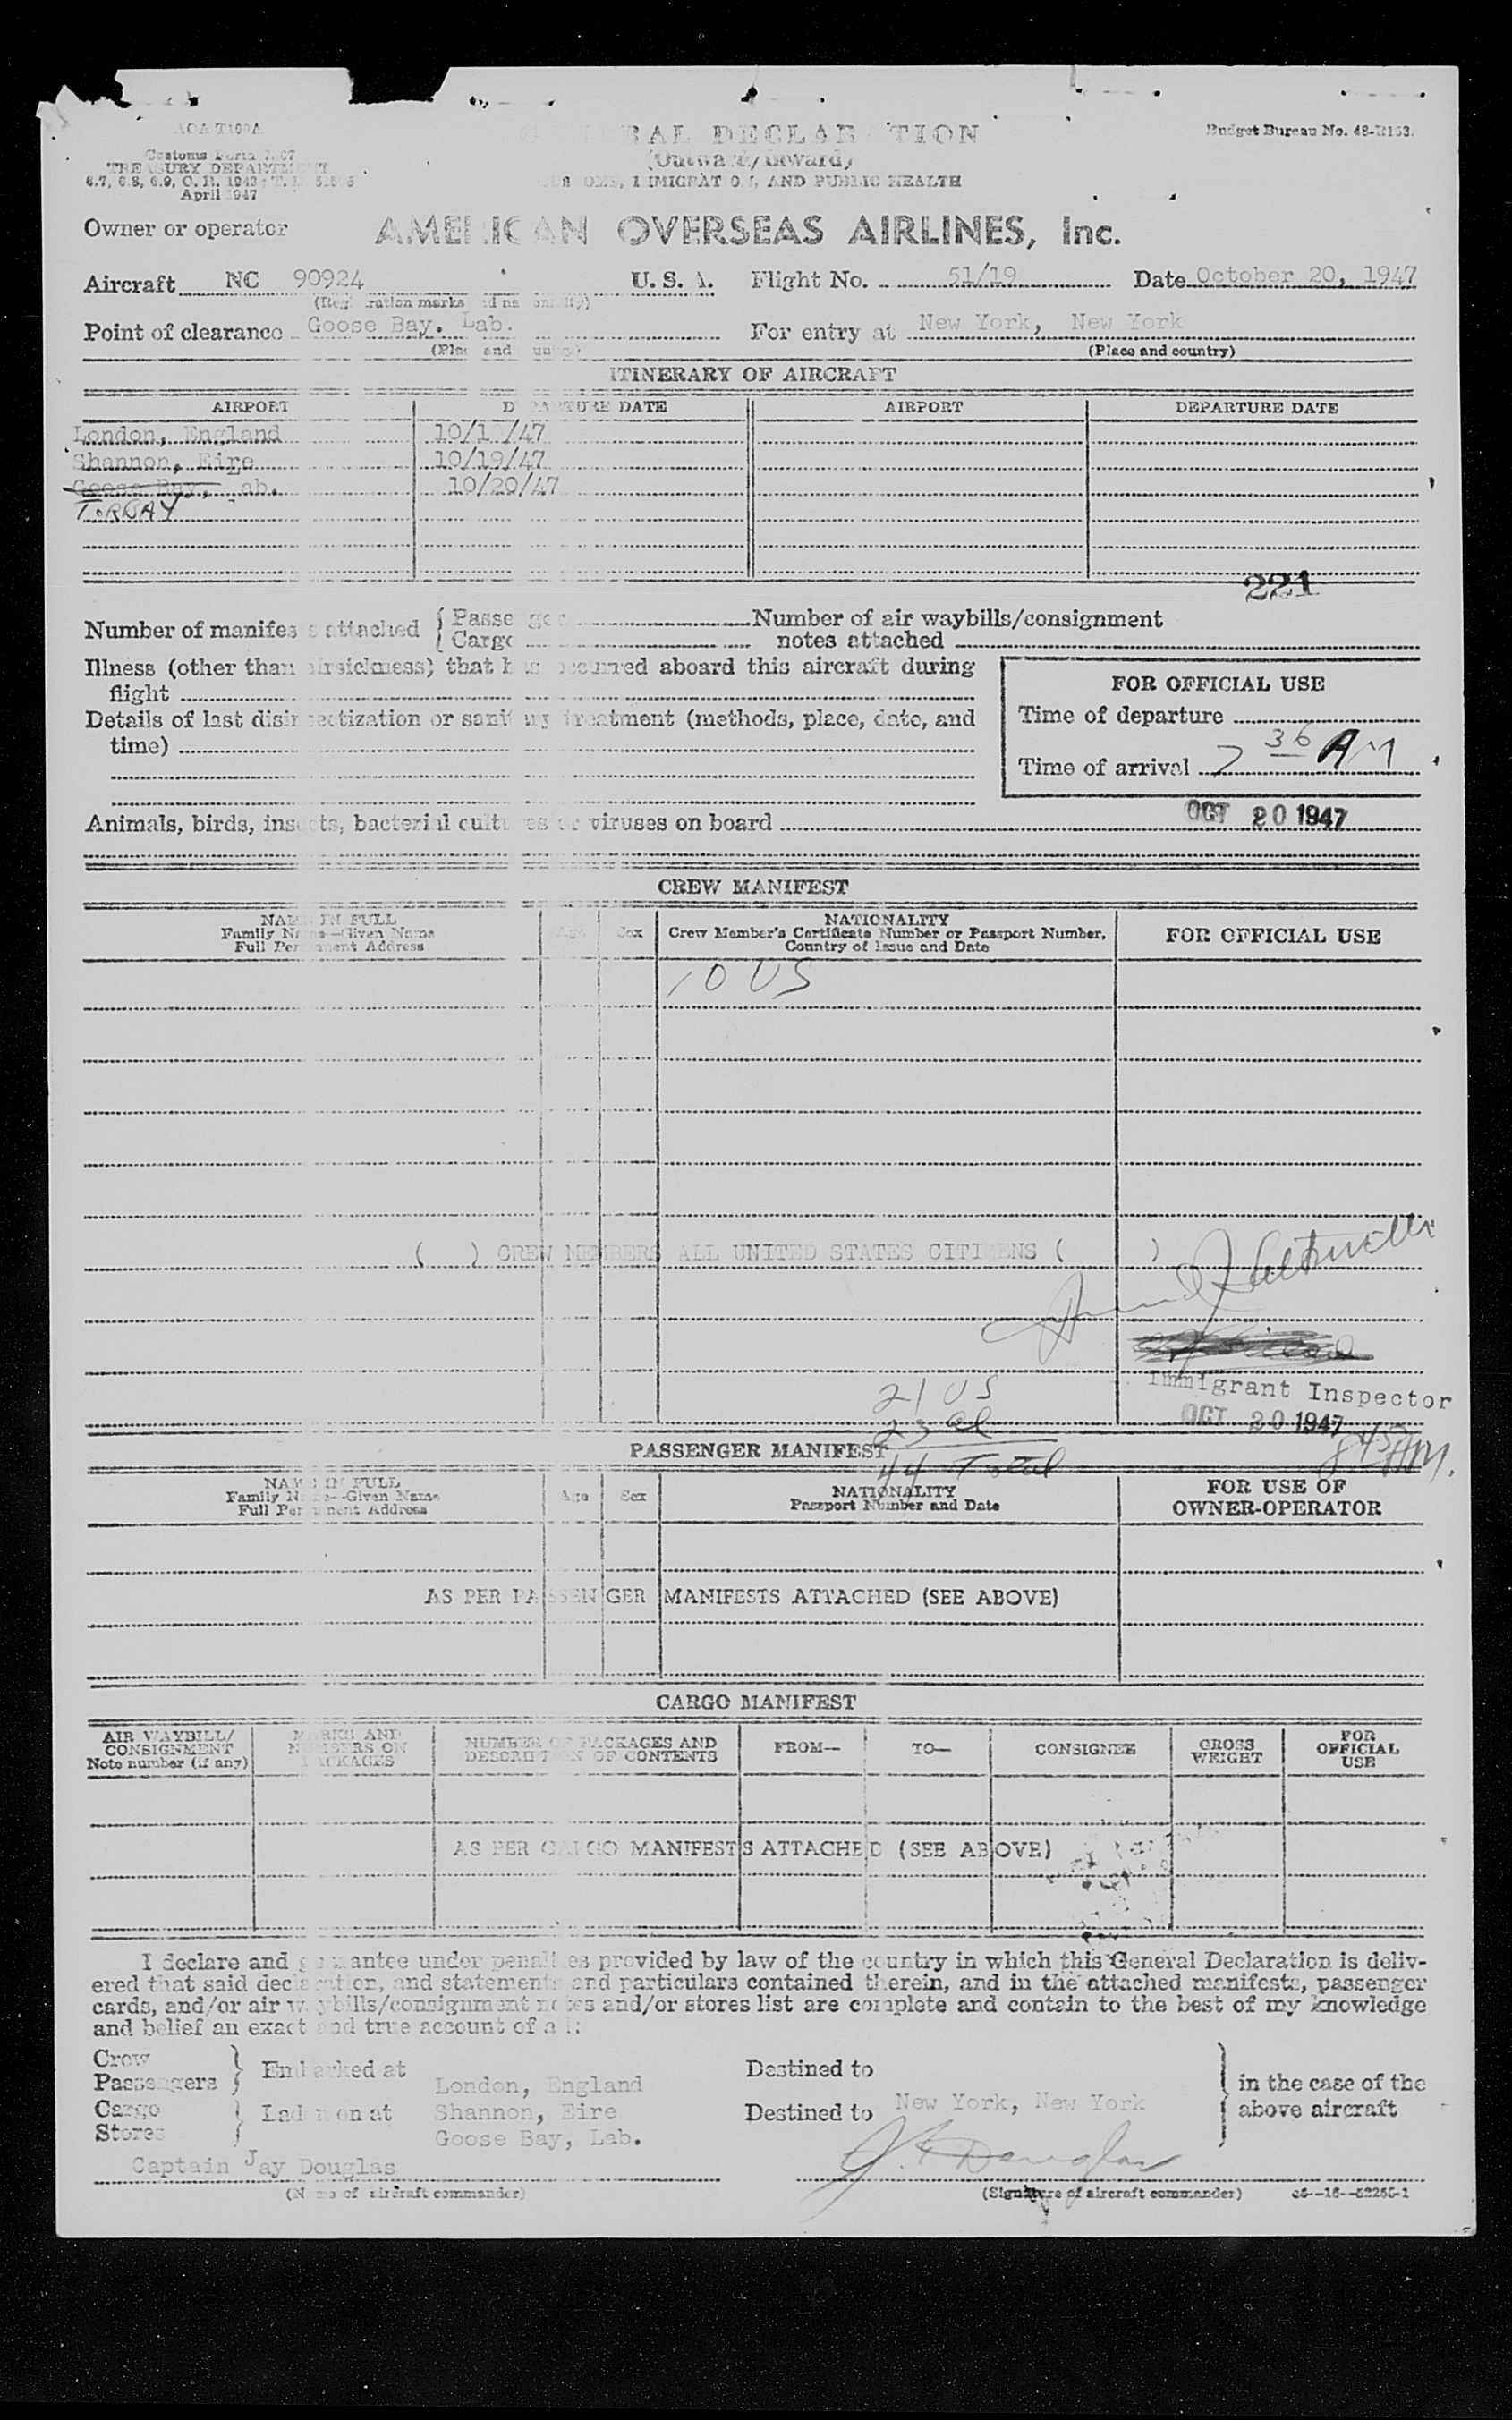 AOA T100A
Customs Form 7507
TREASURY DEPARTMENT
6.7, 6.8, 6.9, C. R. 1943; T. D.
April 1947
GENERAL DECLARATION
(Outward/Inward)
CUSTOMS, IMMIGRATION, AND PUBLIC HEALTH
Budget Bureau No. 48-R153.
Owner or operator AMERICAN OVERSEAS AIRLINES, Inc.
Aircraft NC 90924 U. S. A. Flight No. 51/19 Date October 20, 1947
(Registration marks and nationality)
Point of clearance Goose Bay. Lab. For entry at New York, New York
(Place and country) (Place and country)
ITINERARY OF AIRCRAFT
AIRPORT DEPARTURE DATE AIRPORT DEPARTURE DATE
London, England 10/1 /47
Shannon, Eire 10/19/47
Goose Bay, Lab. 10/20/47
TORBAY
221
Number of manifests attached { Passenger Number of air waybills/consignment
{ Cargo notes attached
Illness (other than airsickness) that has occurred aboard this aircraft during
flight
Details of last disinsectization or sanitary treatment (methods, place, date, and
time)
FOR OFFICIAL USE
Time of departure
Time of arrival 7 36 AM
OCT 20 1947
Animals, birds, insects, bacterial cultures or viruses on board
CREW MANIFEST
NAME IN FULL
Family Name—Given Name
Full Permanent Address
Age Sex
NATIONALITY
Crew Member's Certificate Number or Passport Number,
Country of Issue and Date
FOR OFFICIAL USE
10 US
( ) CREW MEMBERS ALL UNITED STATES CITIZENS ( )
Immigrant Inspector
OCT 20 1947
845AM.
21 US
23 al
44 Total
PASSENGER MANIFEST
NAME IN FULL
Family Name—Given Name
Full Permanent Address
Age Sex
NATIONALITY
Passport Number and Date
FOR USE OF
OWNER-OPERATOR
AS PER PASSENGER MANIFESTS ATTACHED (SEE ABOVE)
CARGO MANIFEST
AIR WAYBILL/
CONSIGNMENT
Note number (if any)
MARKS AND
NUMBERS ON
PACKAGES
NUMBER OF PACKAGES AND
DESCRIPTION OF CONTENTS
FROM—
TO—
CONSIGNEE
GROSS
WEIGHT
FOR
OFFICIAL
USE
AS PER CARGO MANIFESTS ATTACHED (SEE ABOVE)
I declare and guarantee under penalties provided by law of the country in which this General Declaration is deliv-
ered that said declaration, and statements and particulars contained therein, and in the attached manifests, passenger
cards, and/or air waybills/consignment notes and/or stores list are complete and contain to the best of my knowledge
and belief an exact and true account of all:
Crew
Passengers } Embarked at
Cargo
Stores } Laden on at
London, England
Shannon, Eire
Goose Bay, Lab.
Destined to
Destined to New York, New York
} in the case of the
above aircraft
Captain Jay Douglas
(Name of aircraft commander)
J. Douglas
(Signature of aircraft commander)